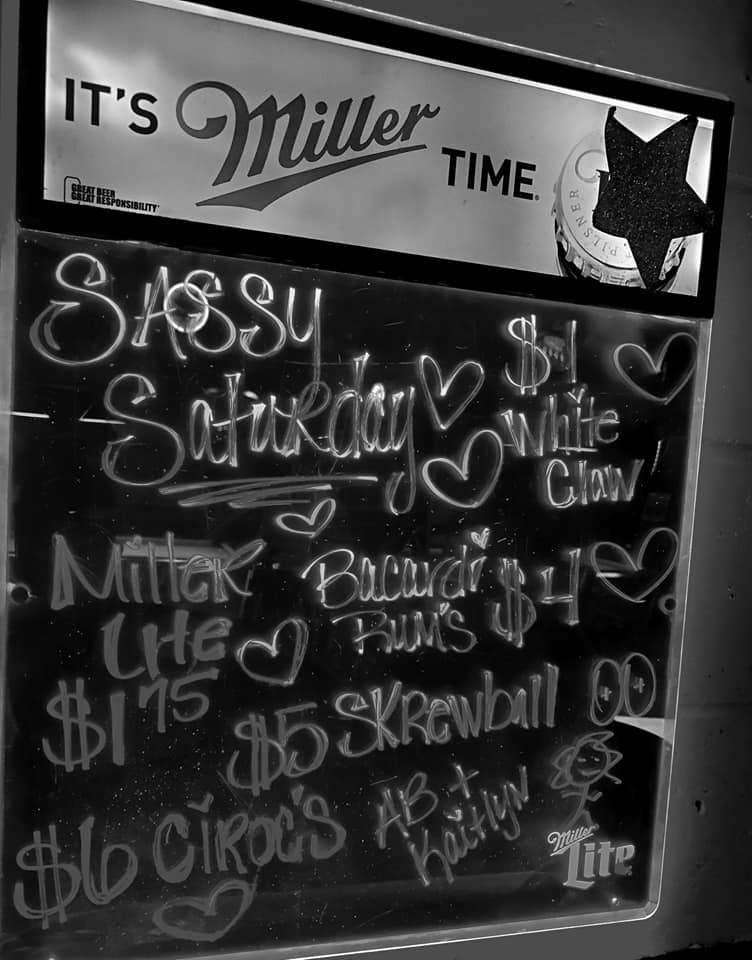 IT'S Miller TIME®
GREAT BEER
GREAT RESPONSIBILITY
PILSNER
SASSY
Saturday
$1
White
Claw
Miller
Lite
$1 75
Bacardi
Rum's
$4
$5 SKRewball
$6 CIROC'S
AB +
Kaitlyn
Miller
Lite